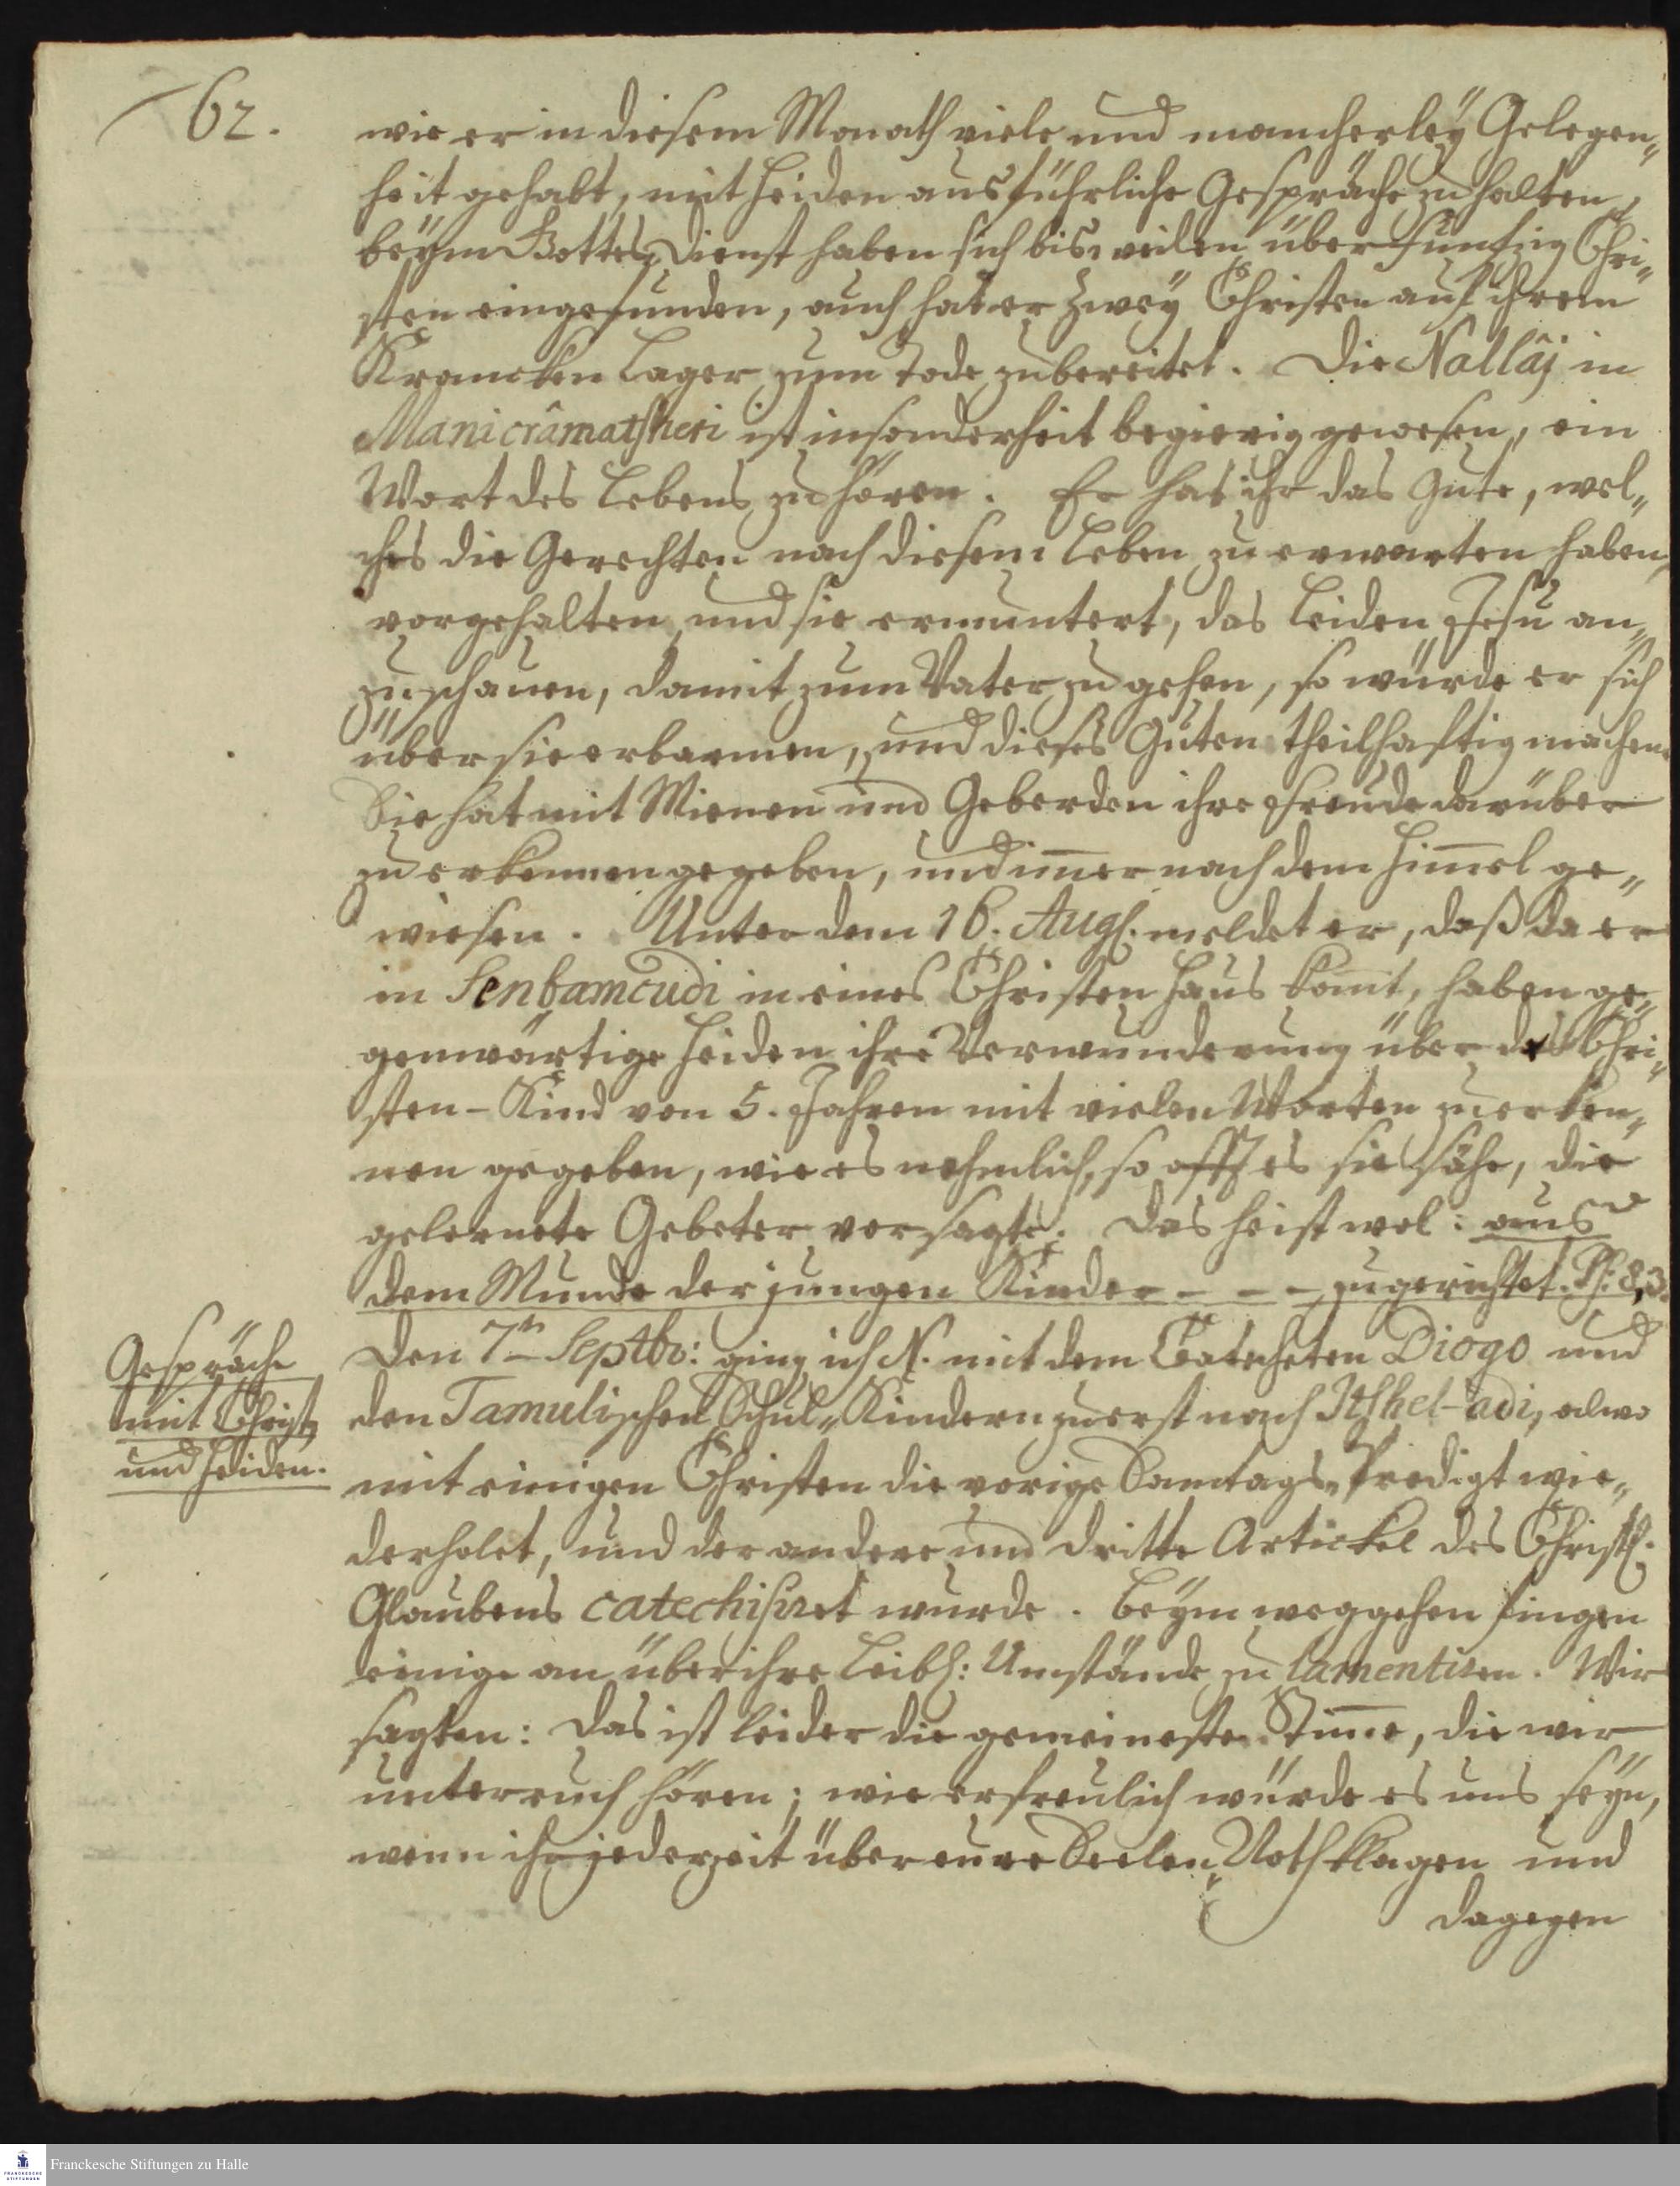 62.
wie er in diesem Monath viele und mancherley Gelegen„
heit gehabt, mit Heiden ausführliche Gespräche zu halten,
beym Gottes„Dienst haben sich bisweilen über funfzig Chri„
sten eingefunden, auch hat er zwey Christen auf ihrem
Krancken Lager zum Tode zubereitet. Die Nallâj in
Manicrâmatsheri ist insonderheit begierig gewesen, ein
Wort des Lebens zu hören. Er hat ihr das Gute, wel„
ches die Gerechten nach diesem Leben zu erwarten haben,
vorgehalten und sie ermuntert, das Leiden Jesu an„
zuschauen, damit zum Vater zu gehen, so würde er sich
über sie erbarmen, und dieses Guten theilhaftig machen.
Sie hat mit Mienen und Geberden ihre Freude darüber
zu erkennen gegeben, und im̄er nach dem Him̄el ge„
wiesen. Unter dem 16. Aug. meldet er, daß da er
in Senbamcudi in eines Christen Haus kom̄t, haben ge„
genwärtige Heiden ihre Verwunderung über des Chri„
sten-Kind von 5. Jahren mit vielen Worten zu erken„
nen gegeben, wie es nehmlich, so offt es sie sähe, die
gelernete Gebeter versagte. Das heist wol: aus
dem Munde der jungen Kinder - - - zugerichtet. Ps: 8,3.
Gespräche
mit Christ.
und Heiden.
Den 7ten Septbr: ging ich N. mit dem Catecheten Diogo und
den Tamulischen Schul„Kindern zuerst nach Itshel-adi, alwo
mit einigen Christen die vorige Sontags„Predigt wie„
derholet, und der andere und dritte Artickel des Christl.
Glaubens catechisiret wurde. Beym weggehen fingen
einige an über ihre Leibl: Umstände zu lamentiren. Wir
sagten: Das ist leider die gemeineste Stim̄e, die wir
unter euch hören; wie erfreulich würde es uns seyn,
wenn ihr jederzeit über eure Seelen„Noth klagen und
dagegen
Franckesche Stiftungen zu Halle